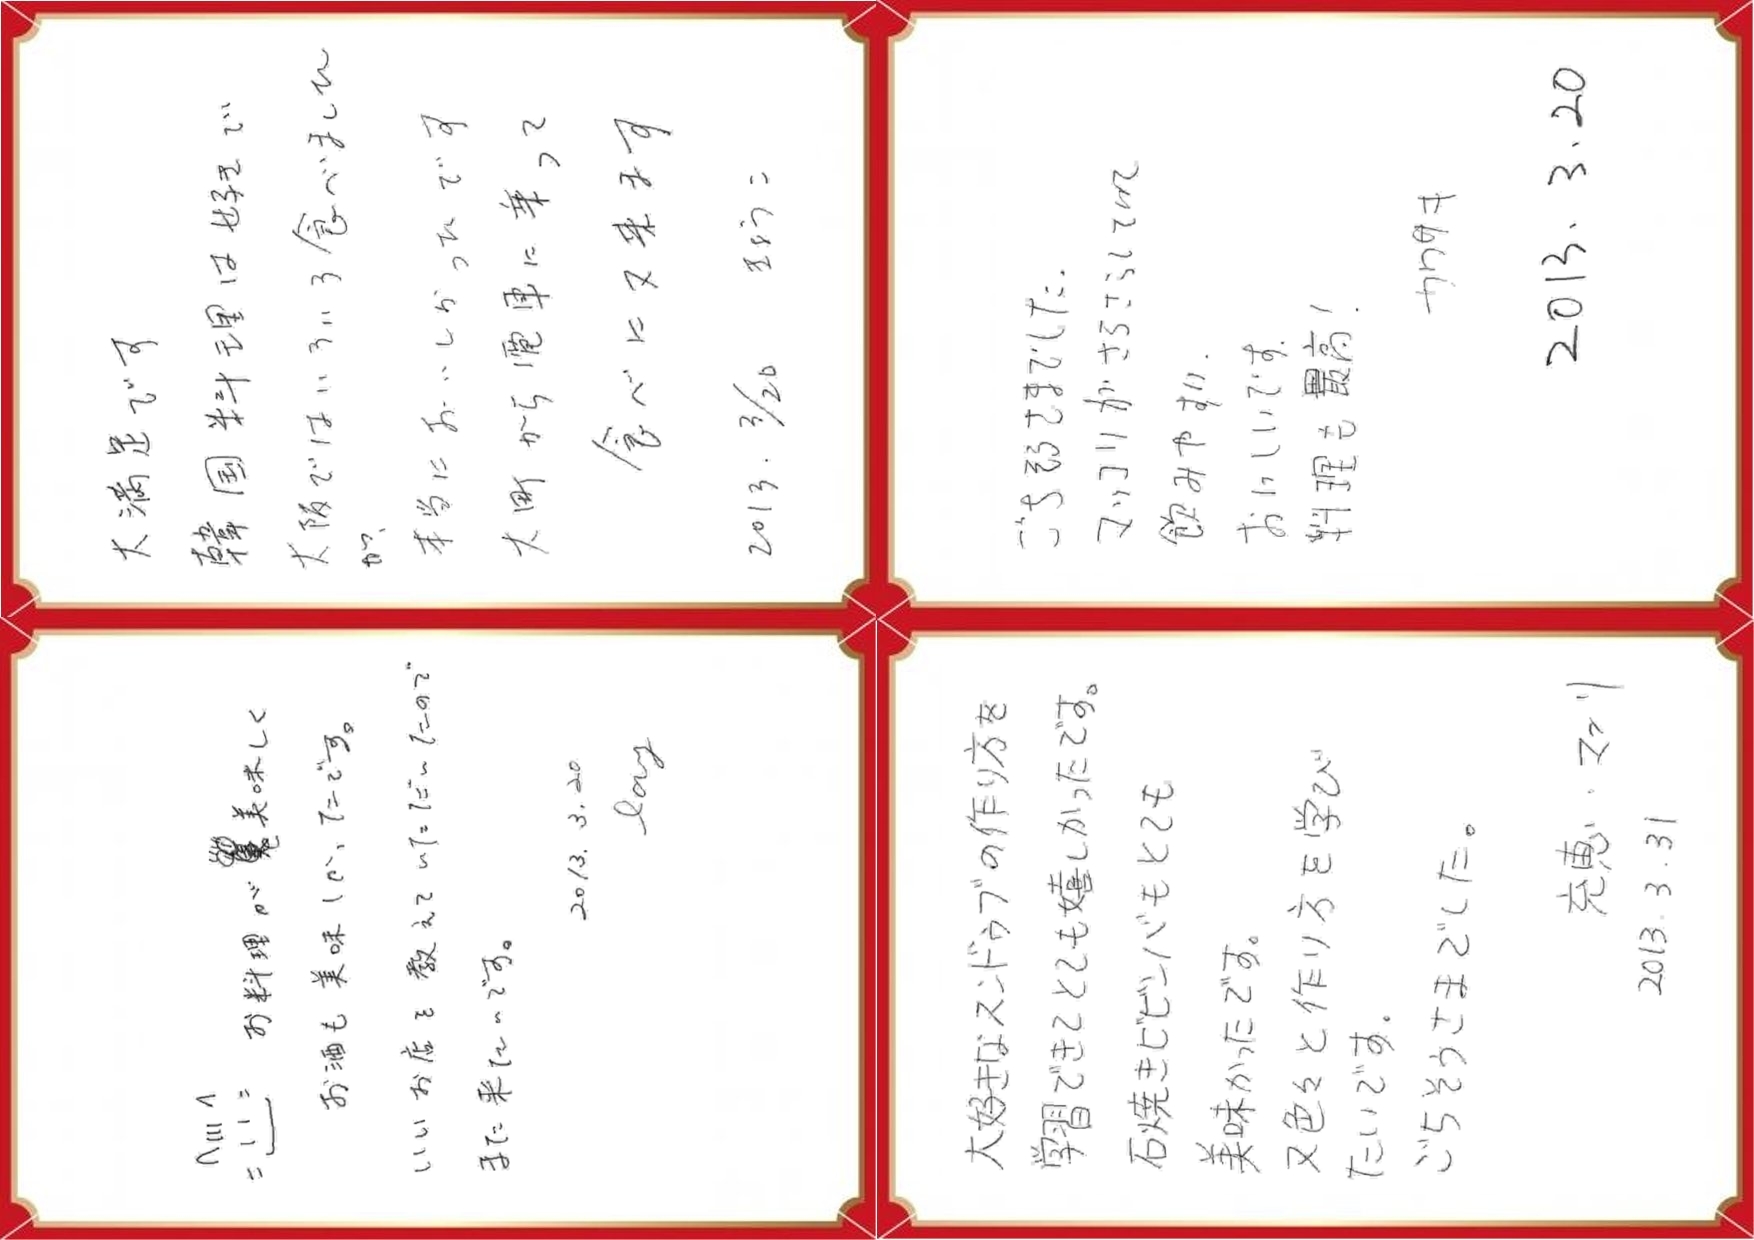 大満足です
韓国料理は好きで
大阪ではいろいろ食べました
が、
本当においしかったです
大町から電車に乗って
食べに又来ます
2013. 3/20 ようこ
ごちそうさまでした.
マッコリがさらさらしてて
飲みやすい.
おいしいです.
料理も最高!
カワサキ
2013. 3. 20
お料理が美味しく
お酒も美味しかったです。
いいお店を教えていただいたので
また来たいです。
2013. 3. 20
大好きなスンドゥブの作り方を
学習できてとても嬉しかったです。
石焼きビビンバもとても
美味かったです。
又色々と作り方を学び
たいです。
ごちそうさまでした。
充恵・マリ
2013. 3. 31